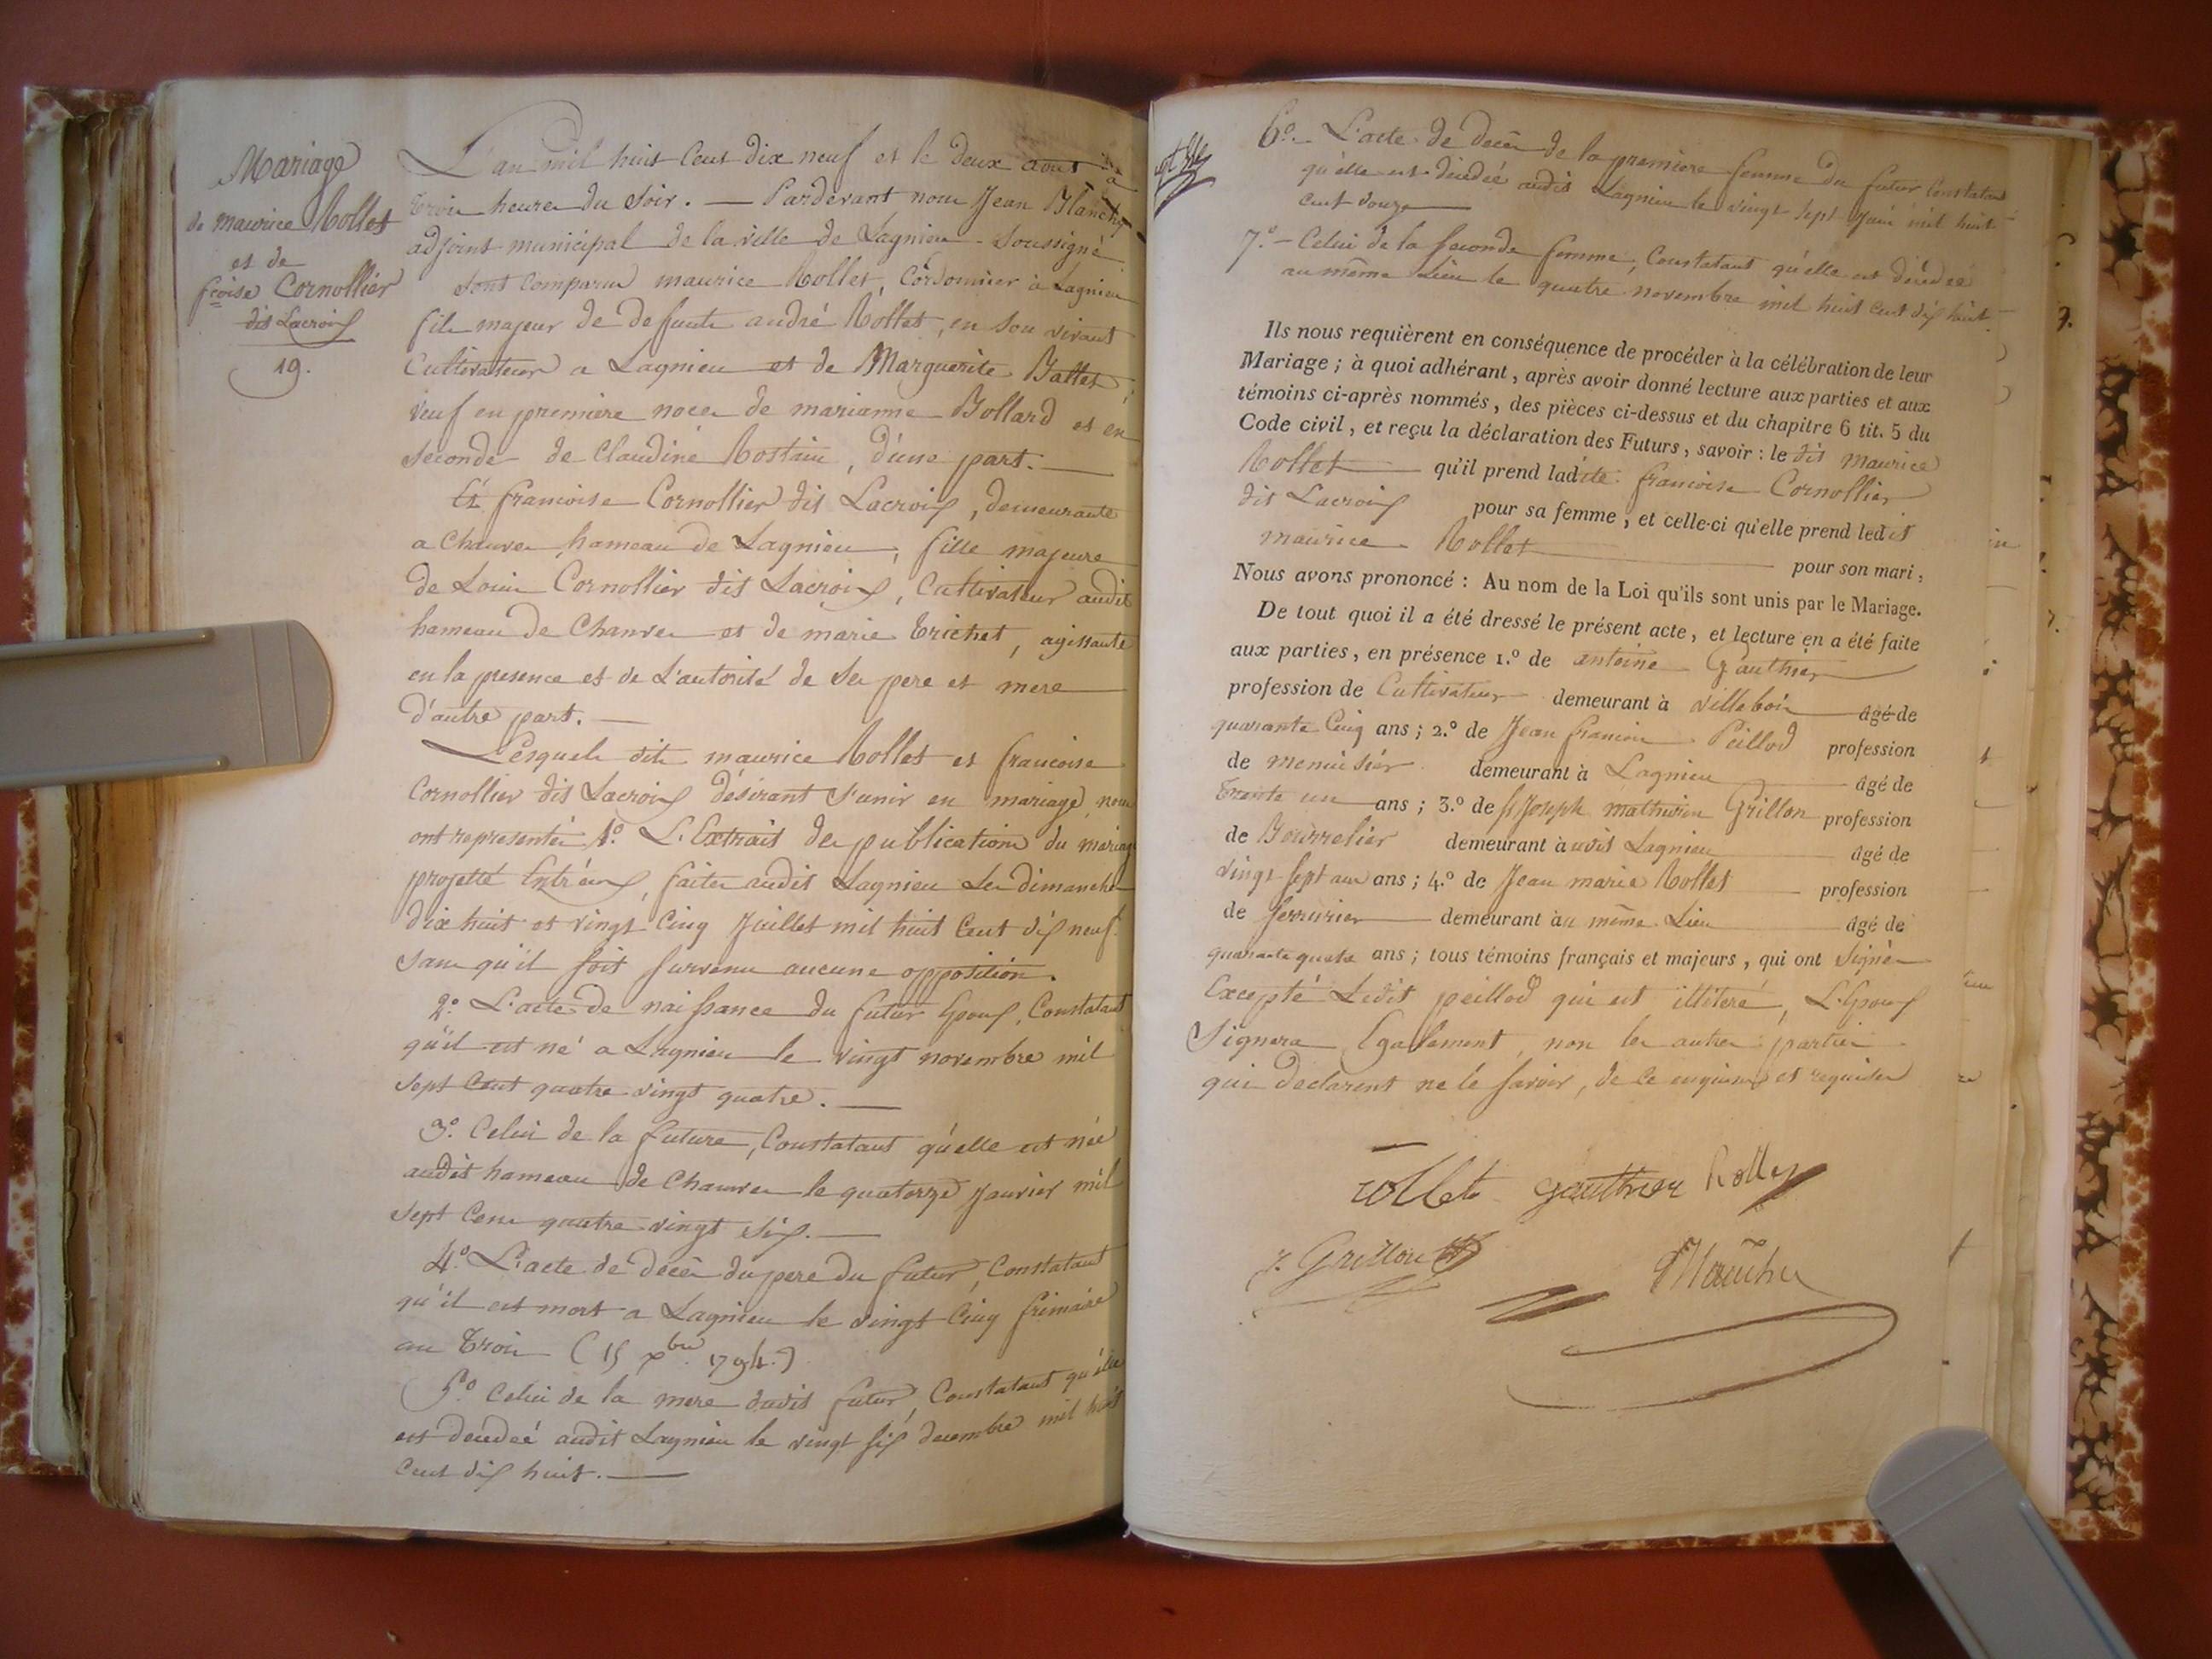 Mariage
de maurice Rollet
et de
fcoise Cornollier
dit Lacroix
19.
L'an mil huit Cent dix neuf et le deux aout à
trois heures du soir. — Pardevant nous Jean Blanchy
adjoint municipal de la ville de Lagnieu soussigné
sont comparus maurice Rollet, Cordonnier à Lagnieu
fils majeur de defunts andré Rollet, en son vivant
Cultivateur a Lagnieu et de Marguerite Ballet,
veuf en premiere noces de marianne Bollard et en
seconde de Claudine Rostain, d'une part. —
Et francoise Cornollier dit Lacroix, demeurante
a Chanves hameau de Lagnieu, fille majeure
de Louis Cornollier dit Lacroix, Cultivateur audit
hameau de Chanves et de marie Trichet, agissante
en la presence et de L'autorité de ses pere et mere
d'autre part. —
Lesquels dits maurice Rollet et francoise
Cornollier dit Lacroix désirant s'unir en mariage, nous
ont representés 1.º L'Extrait des publications du mariage
projetté Entr'eux, faites audit Lagnieu les dimanches
dix huit et vingt Cinq Juillet mil huit Cent dix neuf
sans qu'il soit survenu aucune opposition.
2.º L'acte de naissance du futur Epoux, Constatant
qu'il est né a Lagnieu le vingt novembre mil
sept Cent quatre vingt quatre. —
3.º Celui de la future, Constatant qu'elle est née
audit hameau de Chanves le quatorze Janvier mil
sept Cens quatre vingt six. —
4.º L'acte de décès du pere du futur, Constatant
qu'il est mort a Lagnieu le vingt Cinq frimaire
an trois (15 xbre 1794.)
5.º Celui de la mere dudit futur, Constatant qu'elle
est decedeé audit Lagnieu le vingt six decembre mil huit
Cent dix huit. —
6.º L'acte de decès de la premiere femme du futur Constatant
qu'elle est décedeé audit Lagnieu le vingt sept mil huit
cent douze —
7.º — Celui de la seconde femme, Constatant qu'elle est décedeé
au même Lieu le quatre novembre mil huit Cent dix huit.
Ils nous requièrent en conséquence de procéder à la célébration de leur
Mariage ; à quoi adhérant, après avoir donné lecture aux parties et aux
témoins ci-après nommés, des pièces ci-dessus et du chapitre 6 tit. 5 du
Code civil, et reçu la déclaration des Futurs, savoir : le dit maurice
Rollet — qu'il prend ladite francoise Cornollier
dit Lacroix pour sa femme, et celle-ci qu'elle prend ledit
maurice Rollet — pour son mari,
Nous avons prononcé : Au nom de la Loi qu'ils sont unis par le Mariage.
De tout quoi il a été dressé le présent acte, et lecture en a été faite
aux parties, en présence 1.º de antoine Gauthier
profession de Cultivateur demeurant à villebois âgé de
quarante Cinq ans ; 2.º de Jean francois Peillod profession
de menuisier demeurant à Lagnieu âgé de
trente un ans ; 3.º de Joseph mathurin Grillon profession
de Bourrelier demeurant audit Lagnieu âgé de
vingt sept ans ans ; 4.º de Jean marie Rollet profession
de serrurier demeurant au même Lieu âgé de
quarante quatre ans ; tous témoins français et majeurs, qui ont signés
Excepté Ledit peillod qui est illiteré, L'Epoux
signera Egalement, non les autres parties
qui declarent ne le savoir, de ce enquises et requises
rollet gauthier Rollet
J. Grillon
Blanchy